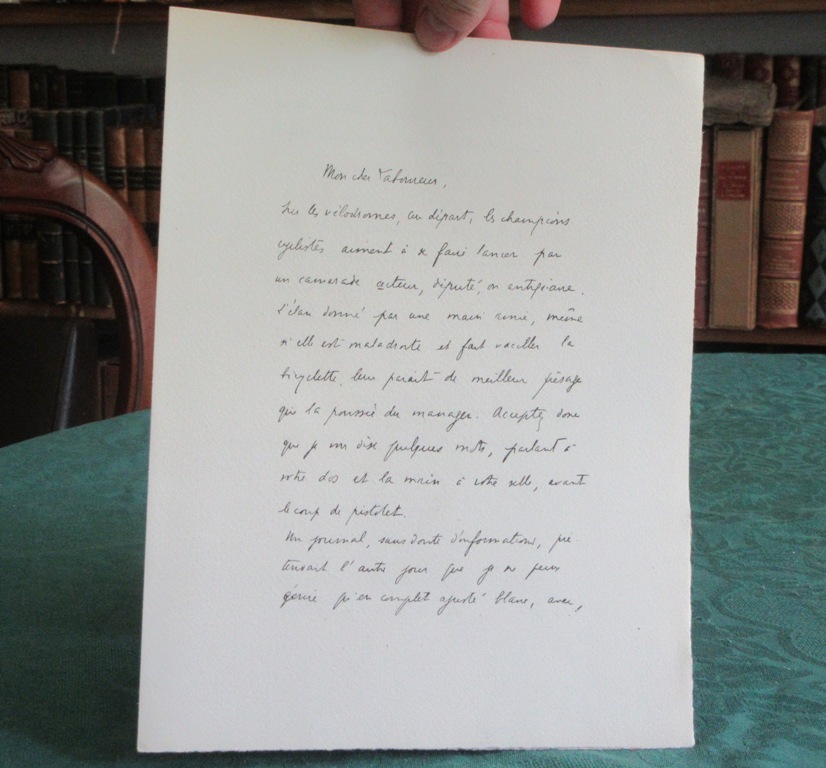 Mon cher Tabourneur,
Sur les vélodromes, au départ, les champions
cyclistes aiment à se faire lancer par
un camarade acteur, député, ou antiquaire.
L'élan donné par une main amie, même
si elle est maladroite et fait vaciller la
bicyclette, leur paraît de meilleur présage
que la poussée du manager. Acceptez donc
que je vous dise quelques mots, parlant à
votre dos et la main à votre selle, avant
le coup de pistolet.
Un journal, sans doute d'informations, pré-
tendait l'autre jour que je ne peux
écrire qu'en complet ajusté blanc, avec,